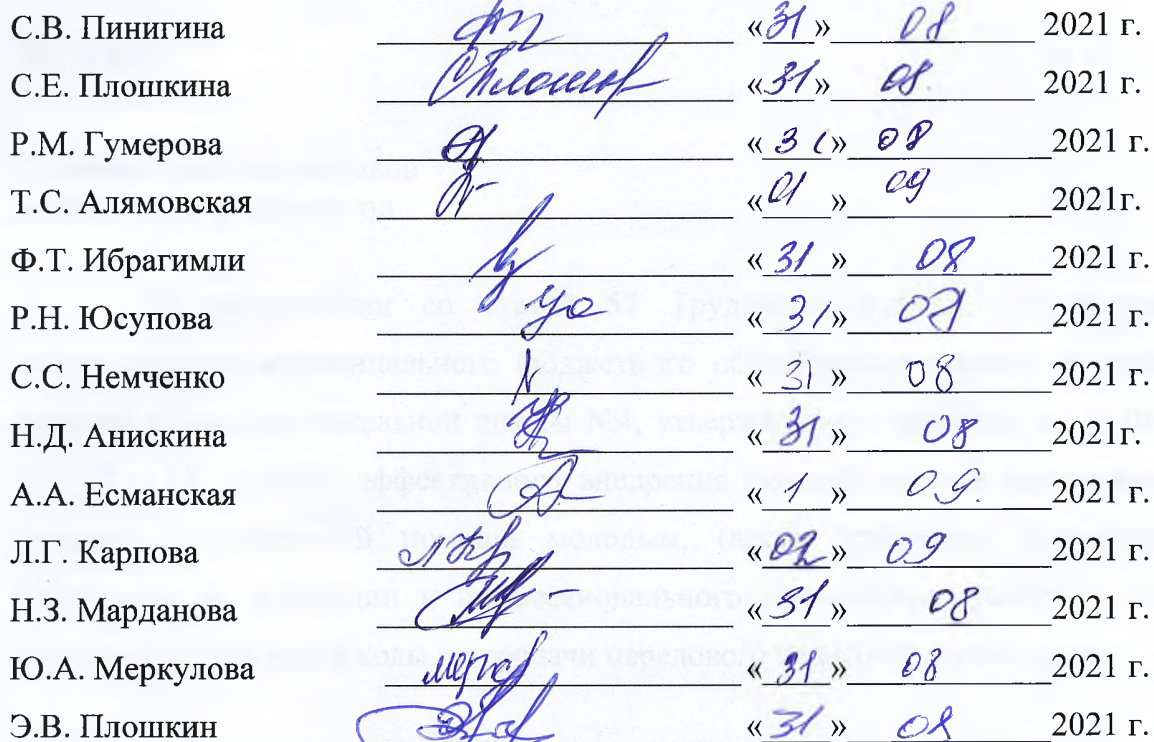 С.В. Пинигина «31» 08 2021 г.
С.Е. Плошкина «31» 08. 2021 г.
Р.М. Гумерова «31» 08 2021 г.
Т.С. Алямовская «01» 09 2021г.
Ф.Т. Ибрагимли «31» 08 2021 г.
Р.Н. Юсупова «31» 08 2021 г.
С.С. Немченко «31» 08 2021 г.
Н.Д. Анискина «31» 08 2021г.
А.А. Есманская «1» 09. 2021 г.
Л.Г. Карпова «02» 09 2021 г.
Н.З. Марданова «31» 08 2021 г.
Ю.А. Меркулова «31» 08 2021 г.
Э.В. Плошкин «31» 08 2021 г.